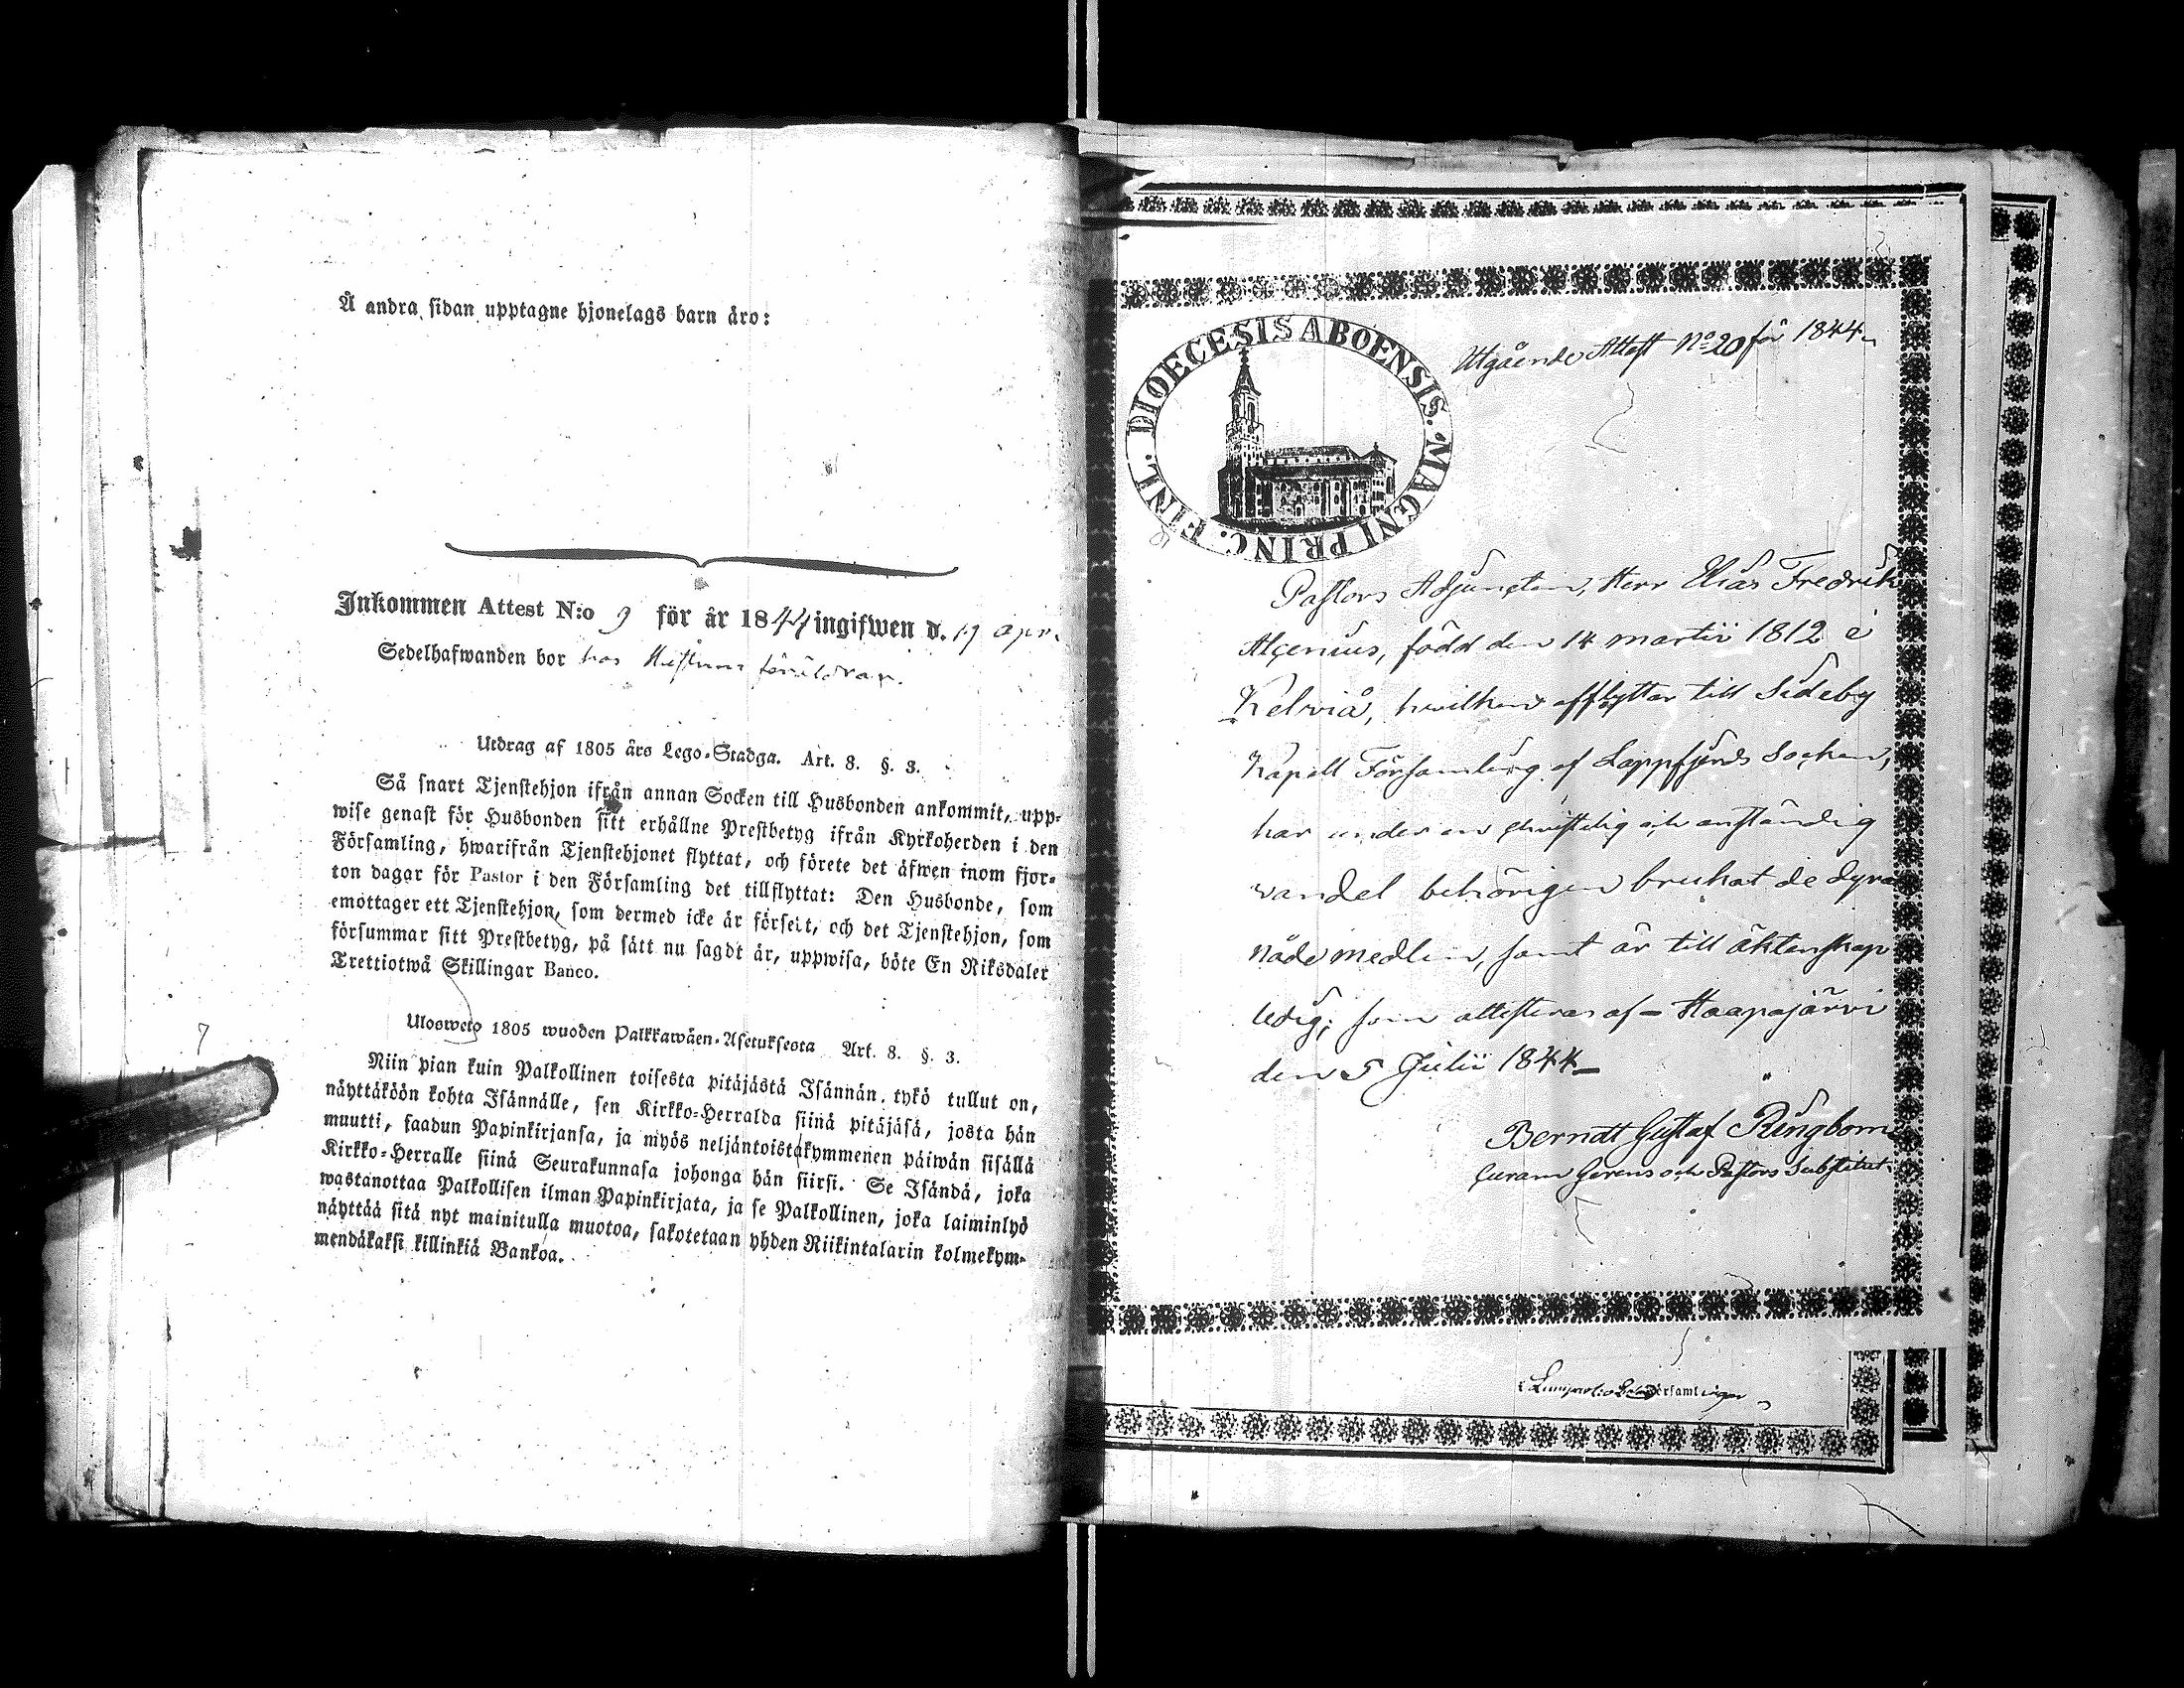 Å andra sidan upptagne hjonelags barn äro:
Inkommen Attest N:o 9 för år 1844 ingifwen d. 19 apr.
Sedelhafwanden bor hos Hustruns föräldrar.
Utdrag af 1805 års Lego-Stadga. Art. 8. §. 3.
Så snart Tjenstehjon ifrån annan Socken till Husbonden ankommit, upp-
wise genast för Husbonden sitt erhållne Prestbetyg ifrån Kyrkoherden i den
Församling, hwarifrån Tjenstehjonet flyttat, och förete det äfwen inom fjor-
ton dagar för Pastor i den Församling det tillflyttat: Den Husbonde, som
emottager ett Tjenstehjon, som dermed icke är försett, och det Tjenstehjon, som
försummar sitt Prestbetyg, på sätt nu sagdt är, uppwisa, böte En Riksdaler
Trettiotwå Skillingar Banco.
Ulosweto 1805 wuoden Palkkawäen-Asetuksesta Art. 8. §. 3.
Niin pian kuin Palkollinen toisesta pitäjästä Isännän tykö tullut on,
näyttäköön kohta Isännälle, sen Kirkko-Herralda siinä pitäjäsä, josta hän
muutti, saadun Papinkirjansa, ja myös neljäntoistakymmenen päiwän sisällä
Kirkko-Herralle siinä Seurakunnasa johonga hän siirsi. Se Isändä, joka
wastanottaa Palkollisen ilman Papinkirjata, ja se Palkollinen, joka laiminlyö
näyttää sitä nyt mainitulla muotoa, sakotetaan yhden Riikintalarin kolmekym-
mendäkaksi killinkiä Bankoa.
7
DIOECESIS ABOENSIS. MAGNI PRINC. FINL.
Utgående Attest No 20 för 1844
Pastors Adjuncten, Herr Elias Fredrik
Alcenius, född den 14 martii 1812 i
Kelviå, hvilken afflyttar till Sideby
Kapell Församling af Lappfjerds Socken,
har under en christelig och anständig
vandel behörigen brukat de dyra
nådemedlen, samt är till äktenskap
ledig; som attesteras af Haapajärvi
den 5 Julii 1844
Berndt Gustaf Ringbom
Curam Gerens och Pastors Substitut.